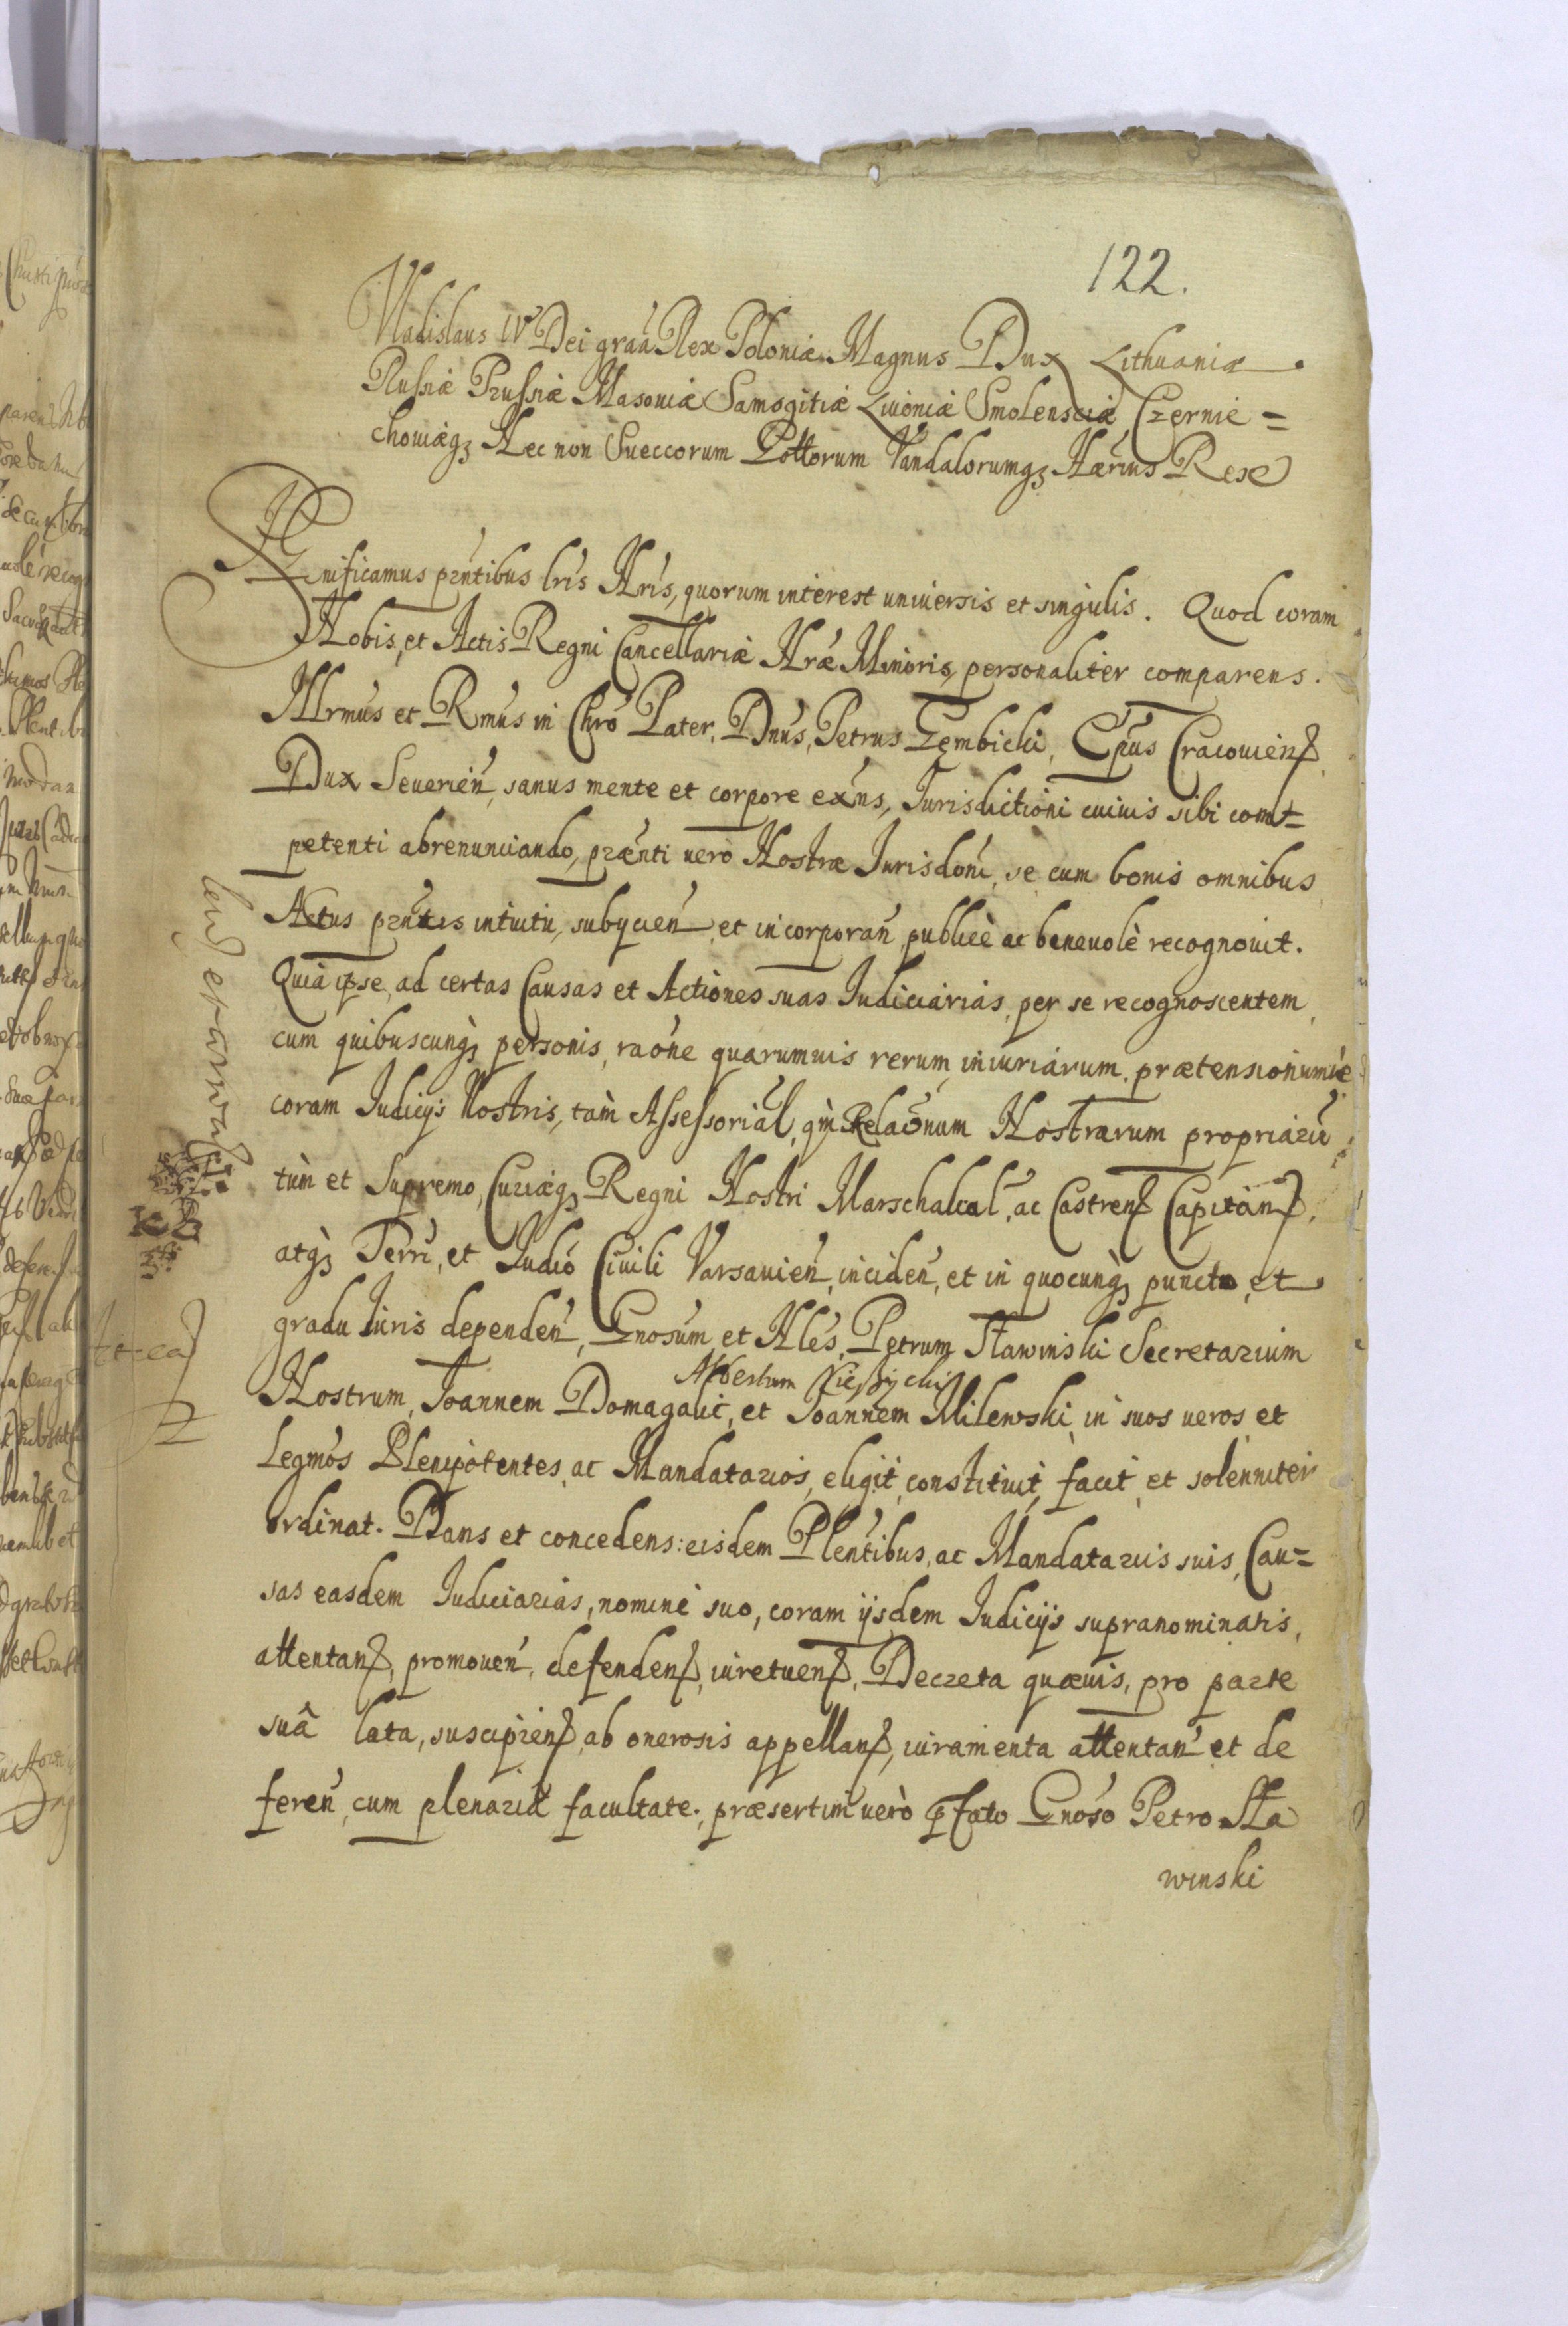 122.
Vladislaus IV Dei graã Rex Poloniæ Magnus Dux Lithuaniæ
Russiæ Prussiæ Masoviæ Samogitiæ Livoniæ Smolensciæ Czernie=
choviæq3 Nec non Sueccorum Gottorum Vandalorumq3 Hærius Rex
Significamus prntibus lris Nris, quorum interest universis et singulis. Quod coram
Nobis, et Actis Regni Cancellariæ Nræ Minoris, personaliter comparens.
Illrmus et Rmus in Chro Pater, Dnus, Petrus Gembicki, Epus Cracoviens
Dux Severien, sanus mente et corpore exns, Jurisdictioni cuivis sibi com=
petenti abrenunciando, prænti vero Nostræ Jurisdoni, se cum bonis omnibus
Actus prntis intuitu, subycien et incorporan publicè ac benevolè recognovit.
Quia ipse, ad certas Causas et Actiones suas Judiciarias, per se recognoscentem
cum quibuscunq3 personis, raone quarumvis rerum, iniuriarum, prætensionumve
coram Judicijs Nostris, tàm Assessorial, qm Relaonum Nostrarum propriarũ
tùm et Supremo, Curiæq3 Regni Nostri Marschalcal, ac Castrens Capitan,
atq3 Terri, et Judio Civili Varsavien, inciden, et in quocunq3 puncto, et
gradu Juris dependen, Gnosum et Nles, Petrum Stawinski Secretarium
Albertum
Nostrum, Joannem Domagalic, et Joannem Milewski, in suos veros et
Legmos Plenipotentes, ac Mandatarios, eligit, constituit, facit, et solenniter
ordinat. Dans et concedens: eisdem Plentibus, ac Mandatariis suis, Cau=
sas easdem Judiciarias, nomine suo, coram ijsdem Judicijs supranominatis,
attentan, promoven, defenden, iuretuen, Decreta quævis, pro parte
suâ lata, suscipien, ab onerosis appellan, iuramenta attentan et de
feren, cum plenariâ facultate, præsertim verò pfato Gnoso Petro Sta
winski